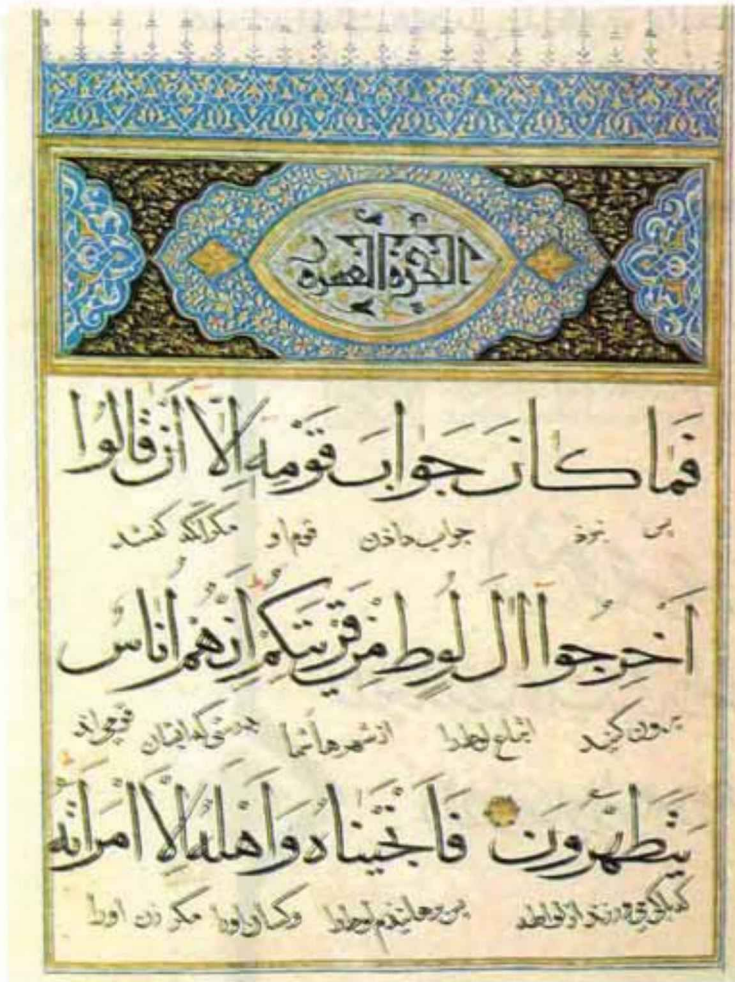 الجزء العشرون
فَمَا كَانَ جَوَابَ قَوْمِهِ إِلَّا أَنْ قَالُوا
پس نبود جواب دادن قوم او مگر آنکه گفتند
أَخْرِجُوا آلَ لُوطٍ مِنْ قَرْيَتِكُمْ إِنَّهُمْ أُنَاسٌ
بیرون کنید اتباع لوط را از شهرهاء شما بدرستی که ایشان
يَتَطَهَّرُونَ فَأَنْجَيْنَاهُ وَأَهْلَهُ إِلَّا امْرَأَتَهُ
پس برهانیدیم لوط را وکسان اورا مگر زن اورا